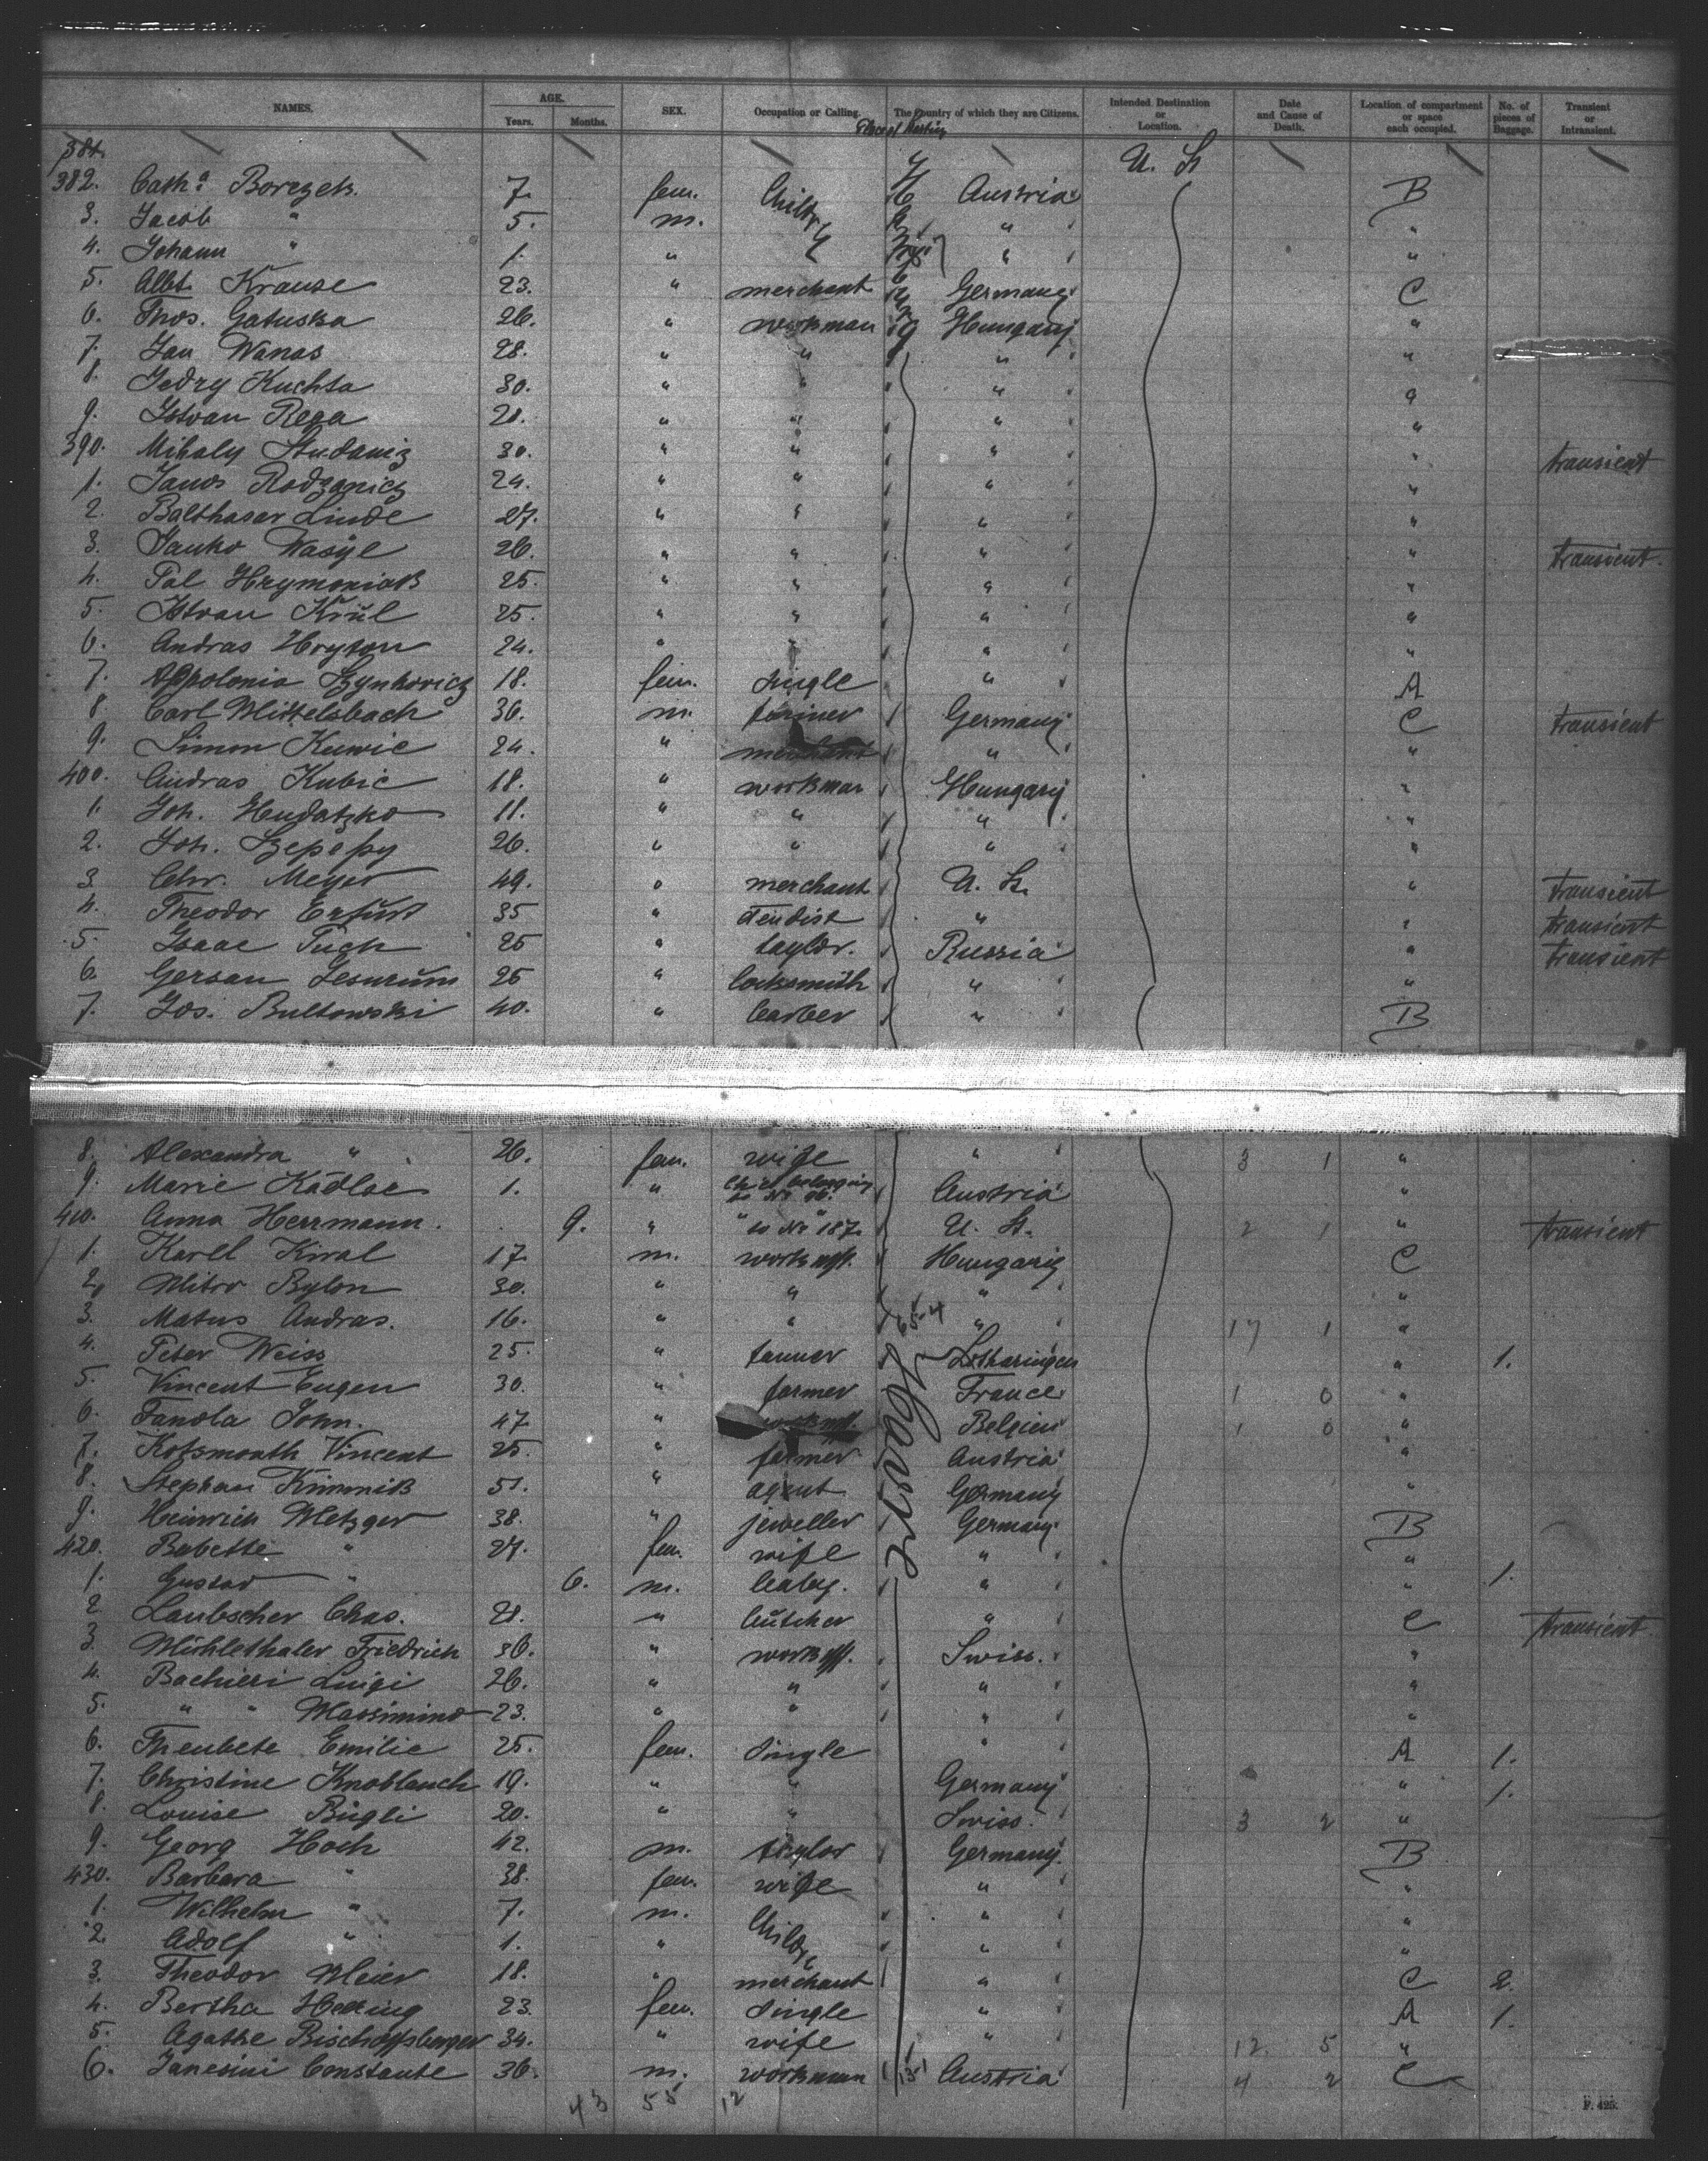 NAMES. AGE. Years. Months. SEX. Occupation or Calling. The Country of which they are Citizens. Intended Destination or Location. Date and Cause of Death. Location of compartment or space each occupied. No. of pieces of Baggage. Transient or Intransient.
381. U. St
382. Cath.a Borczek 7. fem. Childr. Austria B
3. Jacob " 5. m. " "
4. Johann " 1. " " "
5. Albt. Krause 23. " merchant Germany C
6. Thos. Gatuska 26. " workman Hungary "
7. Jan Wanas 28. " " " "
8. Jedry Kuchta 30. " " " "
9. Istvan Rega 21. " " " "
390. Mihaly Studanig 30. " " " " transient
1. Janos Rodzanicz 24. " " " "
2. Balthasar Linde 27. " " " "
3. Janko Wasyl 26. " " " " transient
4. Pal Hrymoniak 25. " " " "
5. Istvan Krul 25. " " " "
6. Andras Hryton 24. " " " "
7. Appolonia Szynkovicz 18. fem. single " A
8. Carl Mittelsbach 36. m. farmer Germany C transient
9. Simon Kuwic 24. " merchant " "
400. Andras Kubic 18. " workman Hungary "
1. Joh. Hudatzko 11. " " " "
2. Joh. 26. " " " "
3. Chr. Meyer 49. " merchant U. St. " transient
4. Theodor Erfurt 35 " dentist " " transient
5. Isaac Tuch 25 " taylor. Russia " transient
6. Gersan Lesurum 25 " locksmith " "
7. Jos. Bultowski 40. " barber " B
8. Alexandra " 26. fem. wife " 3 1 "
9. Marie Kadlac 1. " child belonging to No 96. Austria "
410. Anna Herrmann. 9. " " to No " 187. U. St. 2 1 " transient
1. Karll Kiral 17. m. workm. Hungary C
2. Mitro Bylon 30. " " " "
3. Matus Andras. 16. " " " 17 1 "
4. Peter Weiss 25. " tanner Lotharingen " 1.
5. Vincent Eugen 30. " farmer France 1 0 "
6. Fanola John. 47 " workm. Belgien 1 0 "
7. Kotsmouth Vincent 25. " farmer Austria "
8. Stephan Kimmik 51. " agent Germany "
9. Heinrich Metzger 38. " jeweller Germany B
420. Babette " 27. fem. wife " "
1. Gustav " 6. m. baby. " " 1.
2. Laubscher Chas. 21. " butcher " C transient
3. Mühlethaler Friedrich 36. " workm. Swiss. "
4. Bachieri Luigi 26. " " " "
5. " " Massimino 23. " " " "
6. Theubete Emilie 25. fem. single " A 1.
7. Christine Knoblauch 19. " " Germany " 1.
8. Louise Bügli 20. " " Swiss. 3 2 "
9. Georg Hoch 42. m. taylor Germany. B
430. Barbara " 38. fem. wife " "
1. Wilhelm " 7. m. Childr. " "
2. Adolf " 1. " " "
3. Theodor Meier 18. " merchant " C 2.
4. Bertha Hering 23. fem. single " A 1.
5. Agathe Bischoffsberger 34. " wife " 12. 5 "
6. Janesini Constante 36. m. workman 131 Austria 4 2 C
43 55 12
F. 425.